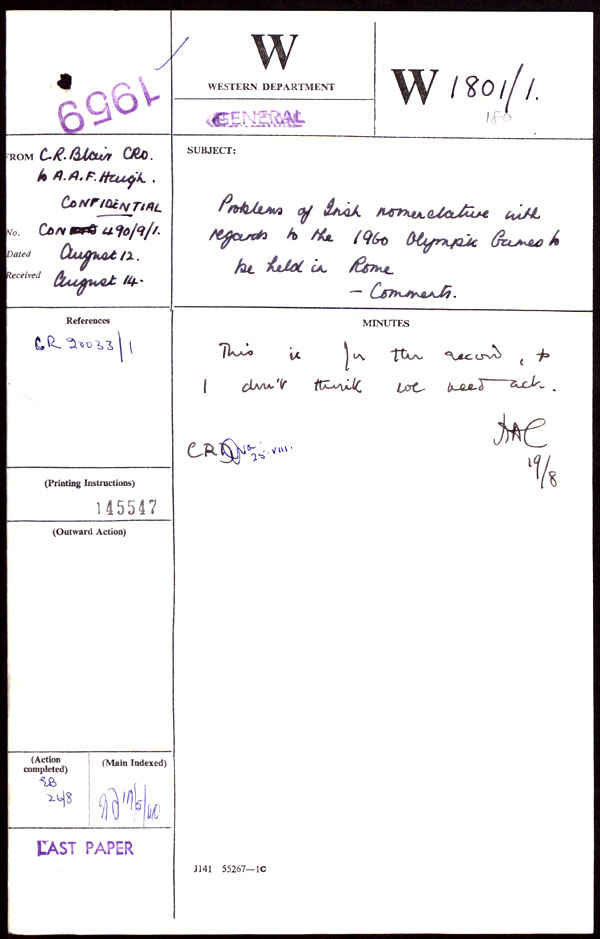 1959
W
WESTERN DEPARTMENT
GENERAL
W 1801/1.
180
FROM C.R. Blair CRO.
to A.A.F. Haugh.
CONFIDENTIAL
No. CON 490/9/1.
Dated August 12.
Received August 14.
SUBJECT:
Problems of Irish nomenclature with
regards to the 1960 Olympic Games to
be held in Rome
– Comments.
References
GR 20033/1
MINUTES
This is for the record, &
I don't think we need act.
19/8
C R D
25.VIII.
(Printing Instructions)
145547
(Outward Action)
(Action
completed)
26/8
(Main Indexed)
17/5/60
LAST PAPER
J141 55267—1C